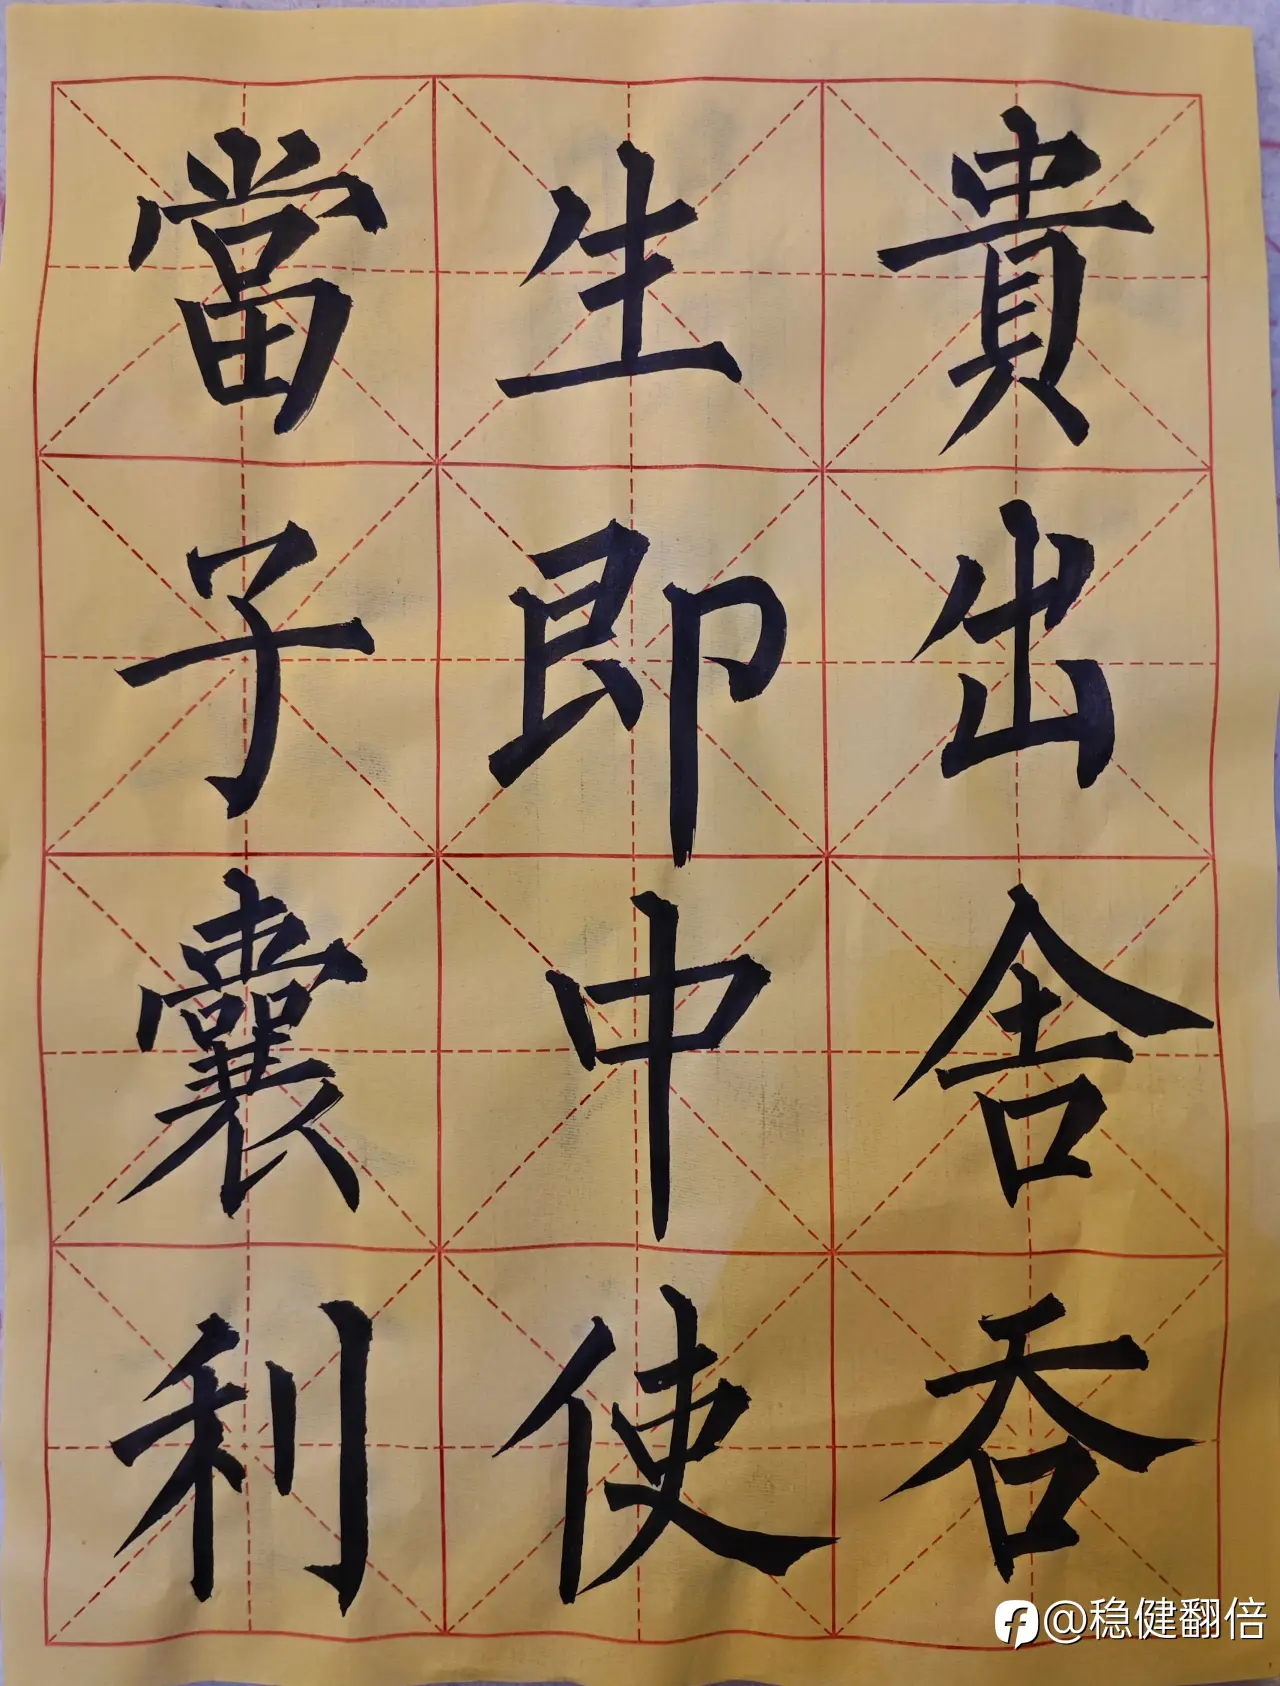 貴出舍吞
生即中使
當子囊利
@稳健翻倍